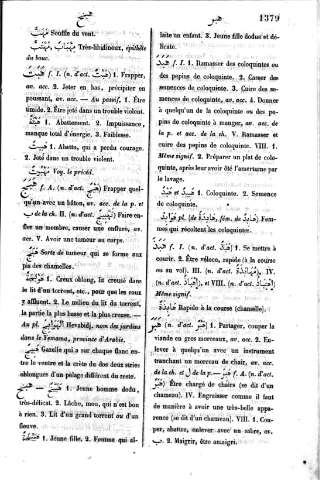 هبج
هبد
1379
هبوب Souffle du vent.
مهباب, مهبّب Très-libidineux, épithète
du bouc.
هَبَتَ f. I. (n. d'act. هَبْت) 1. Frapper,
av. acc. 2. Jeter en bas, précipiter en
poussant, av. acc. — Au passif, 1. Être
timide. 2. Être jeté dans un trouble violent.
1. Abattement. 2. Impuissance,
manque total d'énergie. 3. Faiblesse.
1. Abattu, qui a perdu courage.
2. Jeté dans un trouble violent.
Voy. le précéd.
هبج f. A. (n. d'act. هبج) Frapper quel-
qu'un avec un bâton, av. acc. de la p. et
ب de la ch. II. (n. d'act. تهبيج) Faire en-
fler un membre, causer une enflure, av.
acc. V. Avoir une tumeur au corps.
Sorte de tumeur qui se forme aux
pis des chamelles.
1. Creux oblong, lit creusé dans
le lit d'un torrent, etc., pour que les eaux
y affluent. 2. Le milieu du lit du torrent,
la partie la plus basse et la plus creuse. —
Au pl. Hevabidj, nom des jardins
dans le Yemama, province d'Arabie.
Gazelle qui a sur chaque flanc en-
tre le ventre et la crête du dos deux stries
oblongues d'un pelage différent du reste.
1. Jeune homme dodu,
très-délicat. 2. Lâche, mou, qui n'est bon
à rien. 3. Lit d'un grand torrent ou d'un
fleuve.
1. Jeune fille. 2. Femme qui al-
laite un enfant. 3. Jeune fille dodue et dé-
licate.
هبد f. I. 1. Ramasser des coloquintes ou
des pepins de coloquinte. 2. Casser des
semences de coloquinte. 3. Cuire des se-
mences de coloquinte, av. acc. 4. Donner
à quelqu'un de la coloquinte ou des pe-
pins de coloquinte à manger, av. acc. de
la p. et acc. de la ch. V. Ramasser et
cuire des pepins de coloquinte. VIII. 1.
Même signif. 2. Préparer un plat de colo-
quinte, après leur avoir ôté l'amertume par
le lavage.
هبد et هبيد 1. Coloquinte. 2. Semence
de coloquinte.
هوابد (pl. de هابدة, fém. de هابد) Fem-
mes qui récoltent les coloquintes.
هبذ f. I. (n. d'act. هبذ) 1. Se mettre à
courir. 2. Être véloce, rapide (à la course
ou au vol). III. (n. d'act. مهابذة), IV.
(n. d'act. اهباذ), et VIII. (n. d'act. اهتباذ)
Même signif.
Rapide à la course (chamelle).
هبر (n. d'act. هبر) 1. Partager, couper la
viande en gros morceaux, av. acc. 2. En-
lever à quelqu'un avec un instrument
tranchant un morceau de chair, av. acc.
de la ch. et ل de la p. — هبر f. A. (n. d'act.
هبر) Être chargé de chairs (se dit d'un
chameau). IV. Engraisser comme il faut
de manière à avoir une très-belle appa-
rence (se dit d'un chameau). VIII. 1. Cou-
per, abattre, enlever avec un sabre, av.
ب. 2. Maigrir, être amaigri.